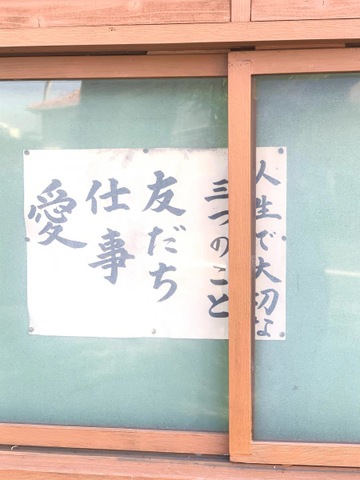 人生で大切な
三つのこと
友だち
仕事
愛